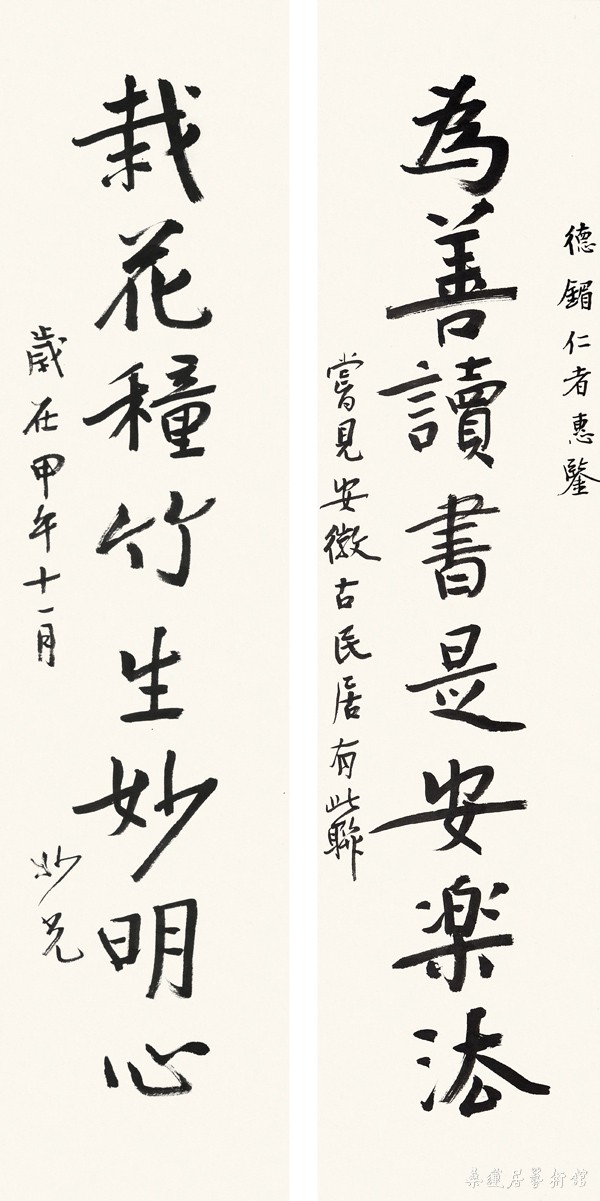 德鎇仁者惠鑒
為善讀書是安楽法
嘗見安徽古民居有此聯
栽花穜竹生妙明心
歲在甲午十一月
妙
蓮居藝術館